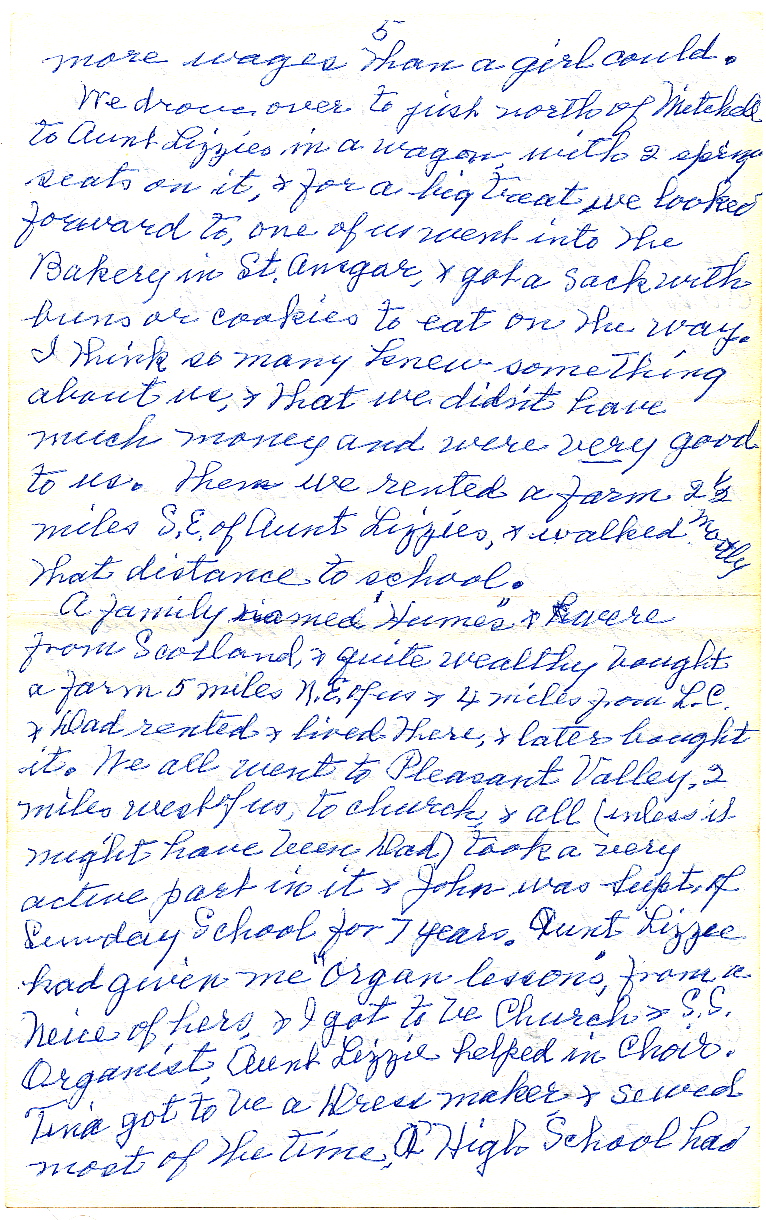 5
more wages than a girl could.
We drove over to just north of Mitchell
to Aunt Lizzies in a wagon, with 2 spring
seats on it, & for a big treat we looked
forward to, one of us went into the
Bakery in St. Ansgar, & got a sack with
buns or cookies to eat on the way.
I think so many knew something
about us, & that we didn't have
much money and were very good
to us. Then we rented a farm 2 1/2
miles S.E. of Aunt Lizzies, & walked mostly
that distance to school.
A family named "Humes" & were
from Scotland, & quite wealthy bought
a farm 5 miles N.E. of us & 4 miles from L.C.
& Dad rented & lived there, & later bought
it. We all went to Pleasant Valley, 2
miles west of us, to church, & all (unless it
might have been Dad) took a very
active part in it & John was Supt. of
Sunday School for 7 years. Aunt Lizzie
had given me "organ lessons", from a
Neice of hers, & I got to be Church & S.S.
Organist, Aunt Lizzie helped in Choir.
Tina got to be a Dress maker & sewed
most of the time, A High School had